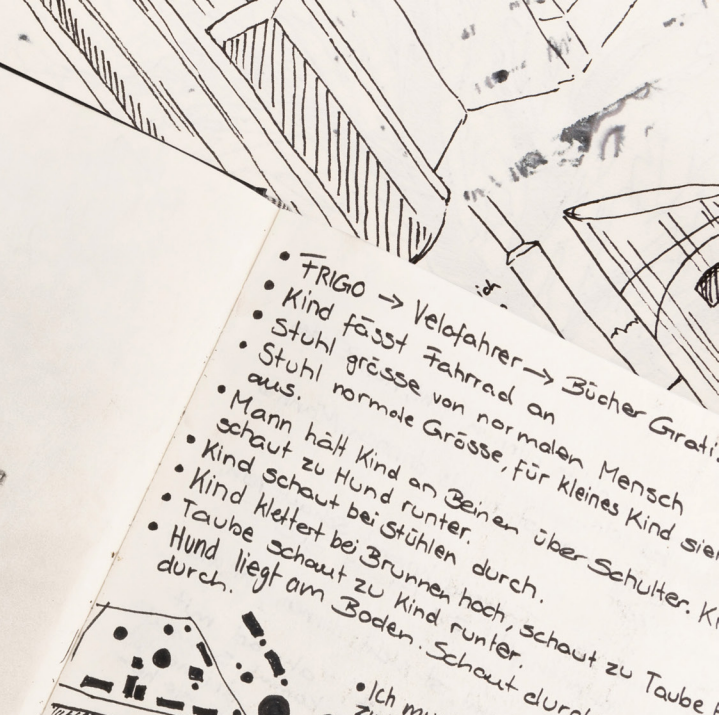 • FRIGO → Velofahrer → Bücher Grati
• Kind fässt Fahrrad an
• Stuhl grösse von normalen Mensch
• Stuhl normale Grösse, für kleines Kind sie
aus.
• Mann hält Kind an Beinen über Schulter. K
schaut zu Hund runter.
• Kind schaut bei Stühlen durch.
• Kind klettert bei Brunnen hoch, schaut zu Taube
• Taube schaut zu Kind runter.
• Hund liegt am Boden. Schaut durch
durch.
• Ich
ich